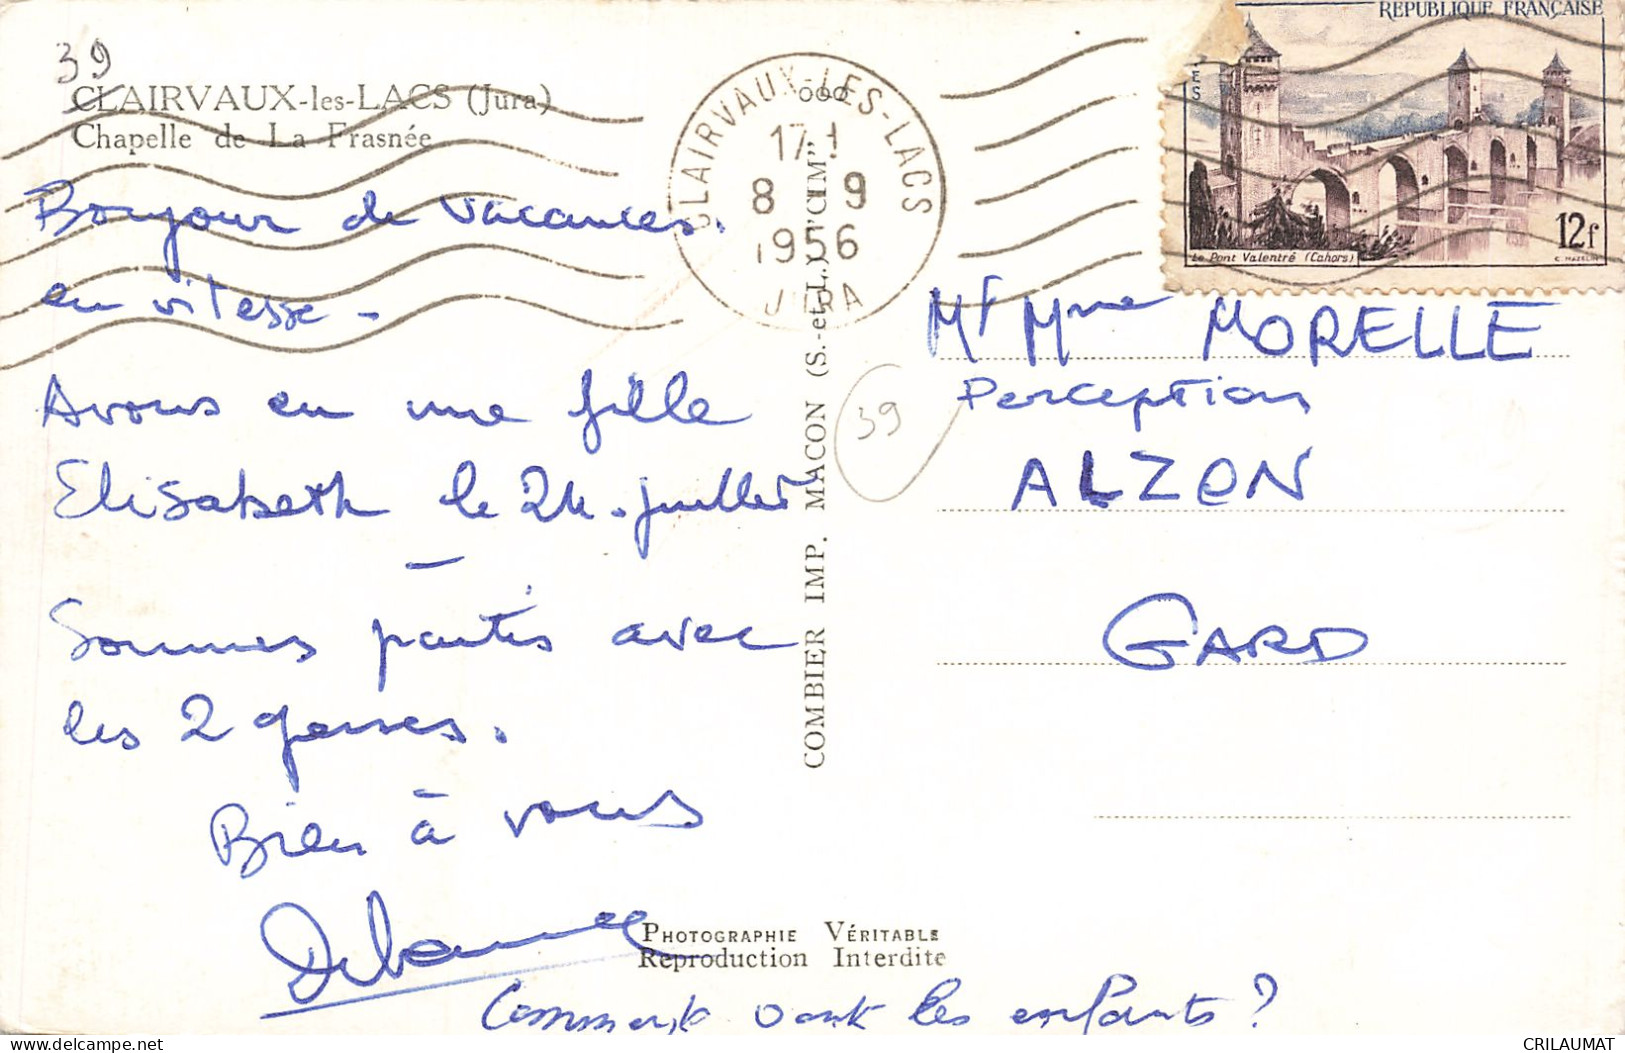 39
CLAIRVAUX-les-LACS (Jura)
Chapelle de La Frasnée
Bonjour de vacances.
en vitesse -
Avons eu une fille
Elisabeth le 24 juillet
Sommes partis avec
les 2 gosses.
Bien à vous
Comment vont les enfants ?
PHOTOGRAPHIE VÉRITABLE
Reproduction Interdite
COMBIER IMP. MACON (S.-et-L.) "CIM"
CLAIRVAUX-LES-LACS
8 9
1956
JURA
REPUBLIQUE FRANÇAISE
12f
Le Pont Valentré (Cahors)
C. MAZELIN
Mr Mme MORELLE
Perception
ALZON
GARD
39
CRILAUMAT